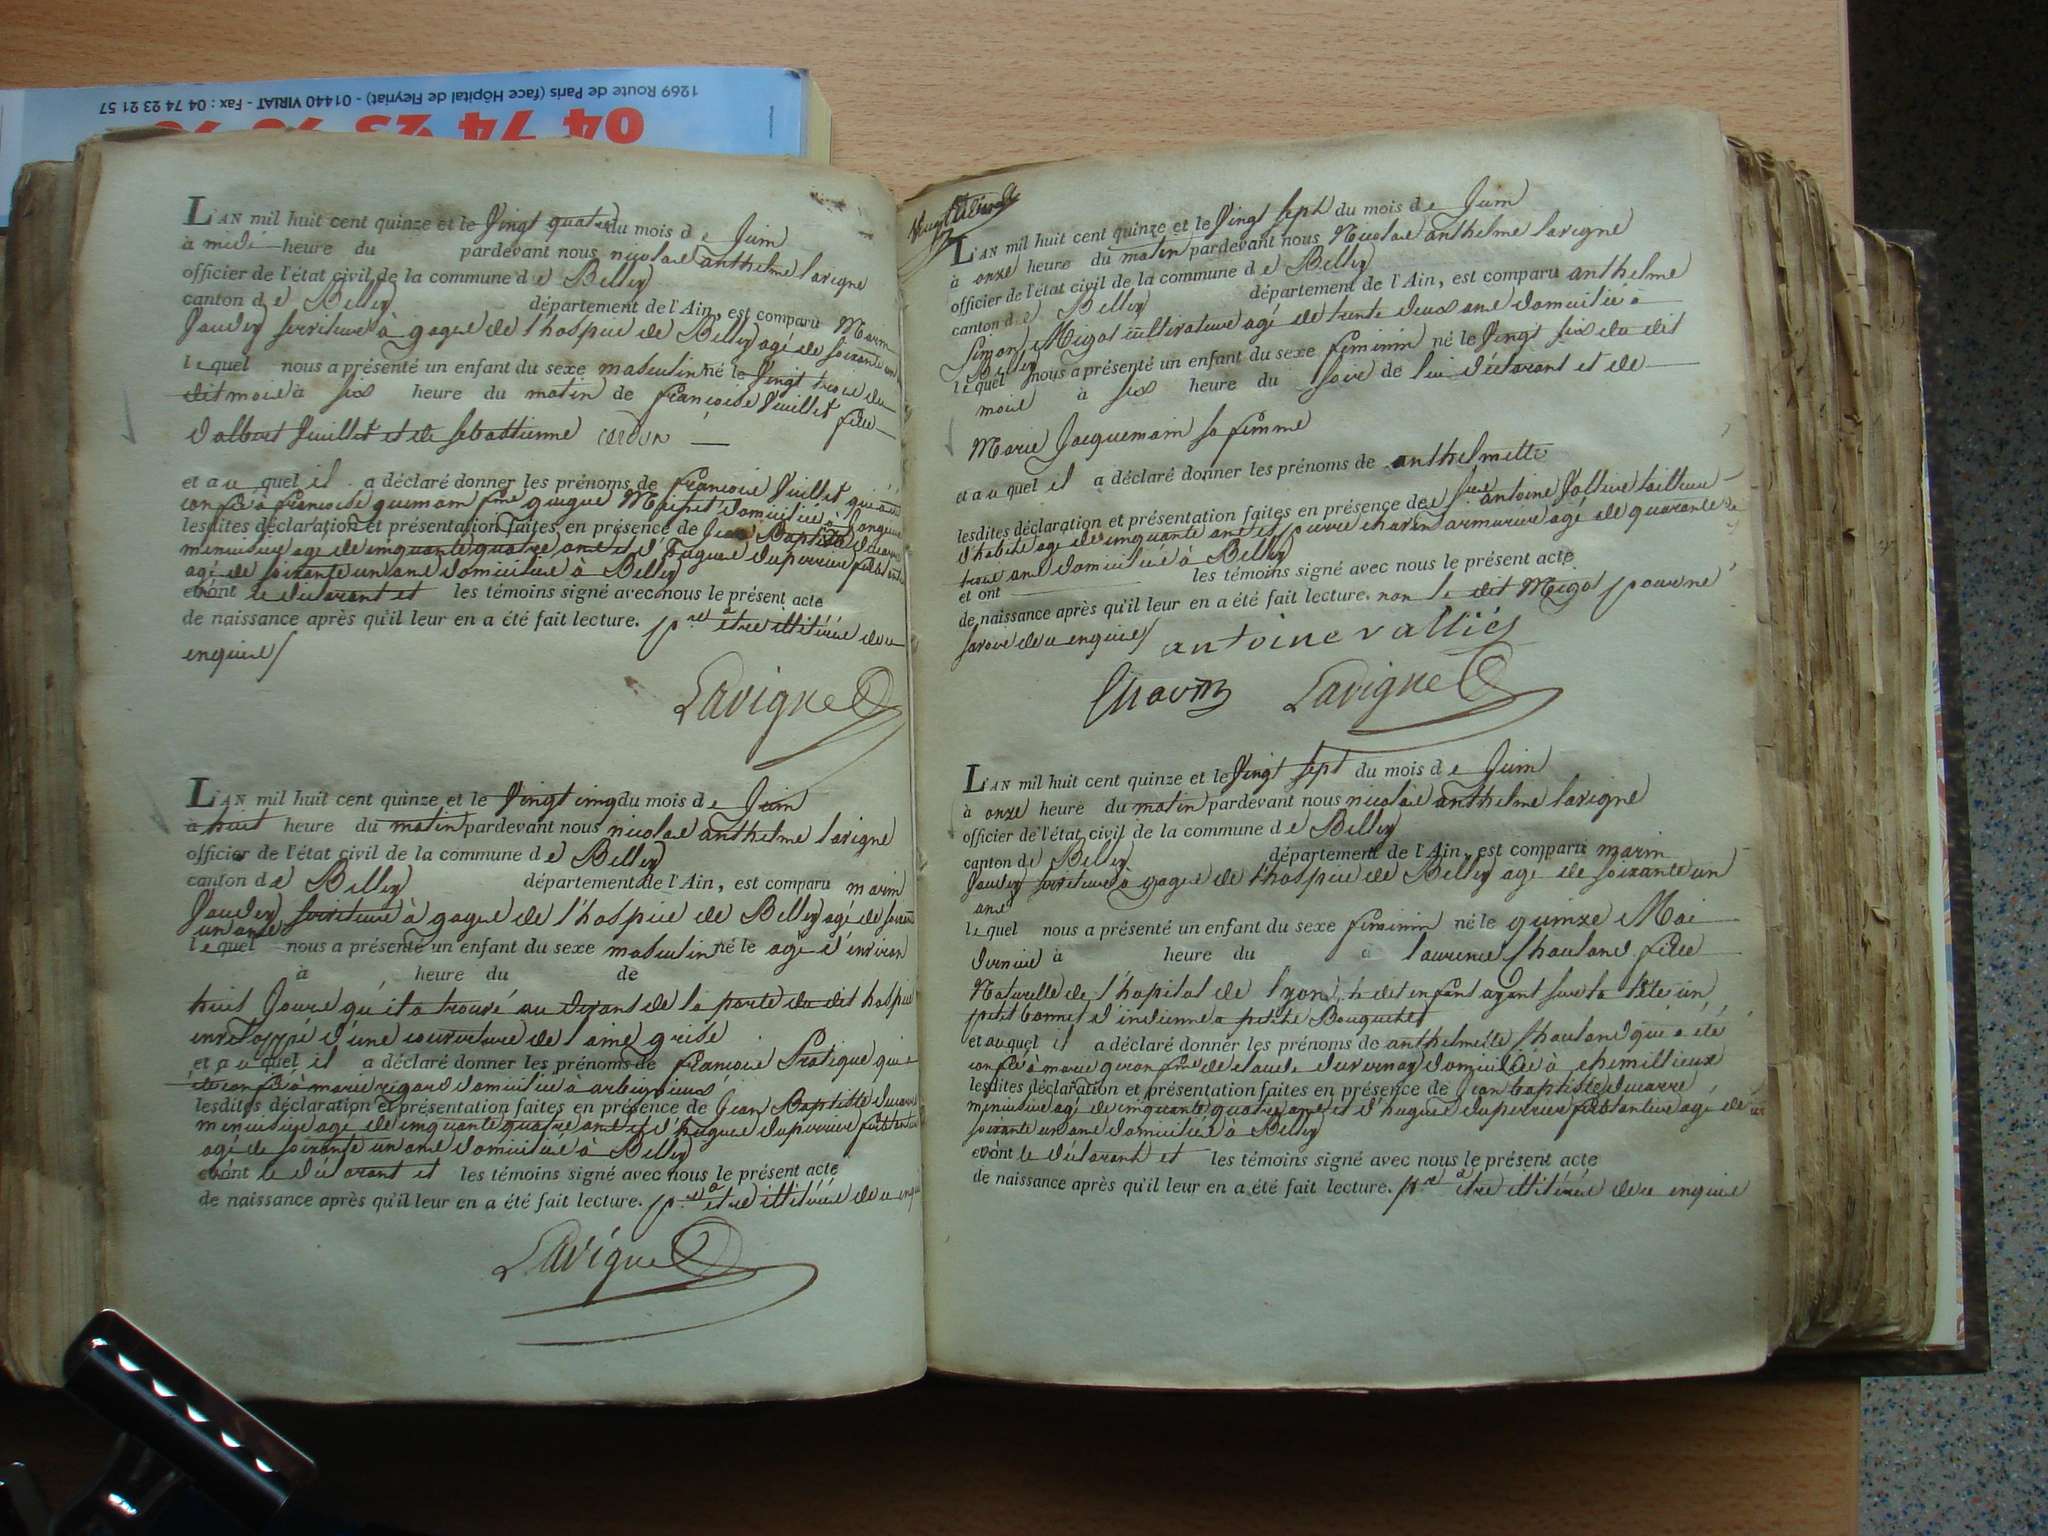 1269 Route de Paris (face Hôpital de Fleyriat) - 01440 VIRIAT - Fax : 04 74 23 21 57
04 74 23
L'AN mil huit cent quinze et le Vingt quatre du mois de Juin
à midi heure du pardevant nous nicolas anthelme lavigne
officier de l'état civil de la commune de Belley
canton de Belley département de l'Ain, est comparu Marin
serviteur à gages de l'hospice de Belley agé de soixante un
lequel nous a présenté un enfant du sexe masculin né le Vingt trois du
dit mois à six heure du matin de françoise Vuillet fille
d'albert Vuillet et de sebastienne cordon
et au quel il a déclaré donner les prénoms de françois Vuillet qui a été
confié à françoise
lesdites déclaration et présentation faites en présence de Jean Baptiste ducarre
menuisier agé de cinquante quatre ans et d'hugues duperrier
agé de soixante un ans domiciliés à Belley
et ont le déclarant et les témoins signé avec nous le présent acte
de naissance après qu'il leur en a été fait lecture. pre a être illitérés de ce
enquis
Lavigne
L'AN mil huit cent quinze et le Vingt cinq du mois de Juin
à huit heure du matin pardevant nous nicolas anthelme lavigne
officier de l'état civil de la commune de Belley
canton de Belley département de l'Ain, est comparu marin
serviteur à gages de l'hospice de Belley agé de soixante
un ans
lequel nous a présenté un enfant du sexe masculin né le agé d'environ
à heure du de
huit Jours qu'il a trouvé au devant de la porte du dit hospice
enveloppé d'une couverture de laine grise
et au quel il a déclaré donner les prénoms de françois Pratique qui a
été confié à marie domicilié à
lesdites déclaration et présentation faites en présence de Jean Baptiste ducarre
menuisier agé de cinquante quatre ans et d'hugues duperrier
agé de soixante un ans domiciliés à Belley
et ont le déclarant et les témoins signé avec nous le présent acte
de naissance après qu'il leur en a été fait lecture. pre a être illitérés de ce enquis
Lavigne
L'AN mil huit cent quinze et le Vingt sept du mois de Juin
à onze heure du matin pardevant nous Nicolas anthelme lavigne
officier de l'état civil de la commune de Belley
canton de Belley département de l'Ain, est comparu anthelme
Simon Migot cultivateur agé de trente deux ans domicilié à
Belley
lequel nous a présenté un enfant du sexe féminin né le Vingt six du dit
mois à six heure du soir de lui déclarant et de
Marie Jacquemain sa femme
et au quel il a déclaré donner les prénoms de anthelmette
lesdites déclaration et présentation faites en présence de antoine Vallier tailleur
d'habits agé de cinquante ans et pierre charvin armurier agé de quarante
trois ans domiciliés à Belley
et ont les témoins signé avec nous le présent acte
de naissance après qu'il leur en a été fait lecture. non le dit Migot pour ne
savoir de ce enquis
antoine vallier
Charvin Lavigne
L'AN mil huit cent quinze et le Vingt sept du mois de Juin
à onze heure du matin pardevant nous nicolas anthelme lavigne
officier de l'état civil de la commune de Belley
canton de Belley département de l'Ain, est comparu marin
serviteur à gages de l'hospice de Belley agé de soixante un
ans
lequel nous a présenté un enfant du sexe féminin né le quinze Mai
dernier à heure du à laurence fille
Naturelle de l'hopital de lyon, le dit enfant ayant sur la tête un
petit bonnet d'indienne a petits Bouquets
et au quel il a déclaré donner les prénoms de anthelmette qui a été
confié à marie de claude duvernay domicilié à chemillieux
lesdites déclaration et présentation faites en présence de Jean baptiste ducarre
menuisier agé de cinquante quatre ans et d'hugues duperrier agé de
soixante un ans domiciliés à Belley
et ont le déclarant et les témoins signé avec nous le présent acte
de naissance après qu'il leur en a été fait lecture. pre a être illitérés de ce enquis